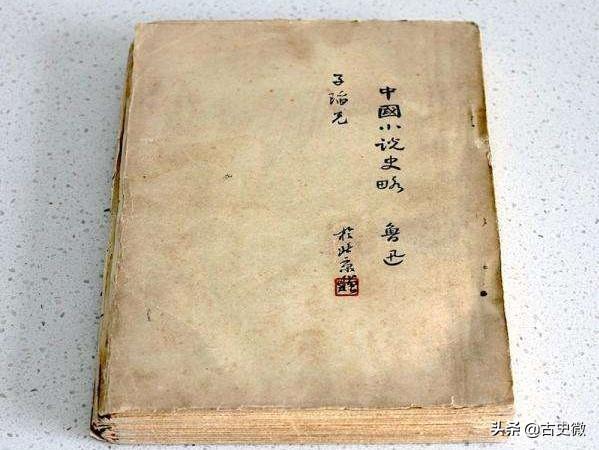 中國小说史略 魯迅
子陶兄
於北京
头条 @古史微